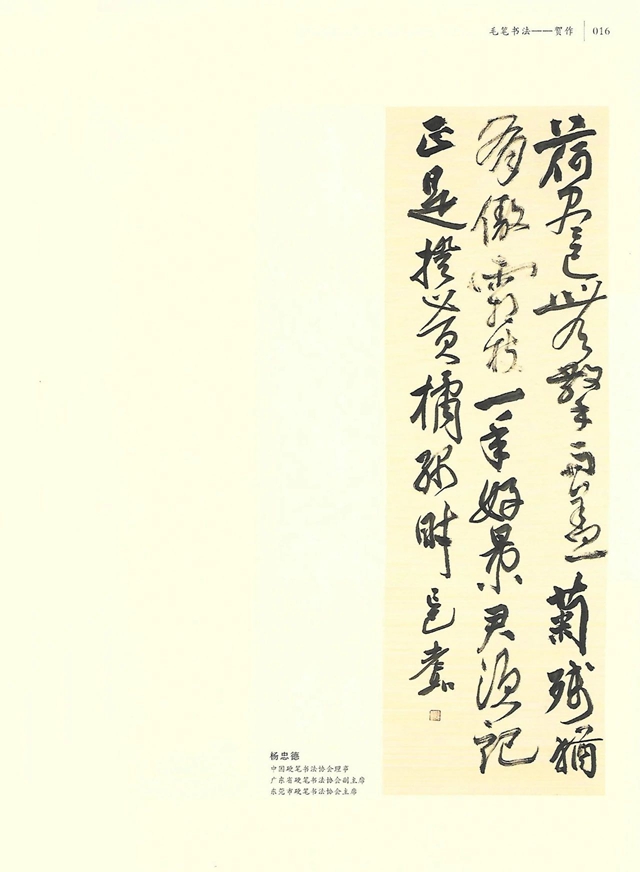 毛笔书法——贺作 016
荷尽已無擎雨盖菊残猶
有傲霜枝一年好景君须记
正是橙黄橘绿时
杨忠德
中国硬笔书法协会理事
广东省硬笔书法协会副主席
东莞市硬笔书法协会主席